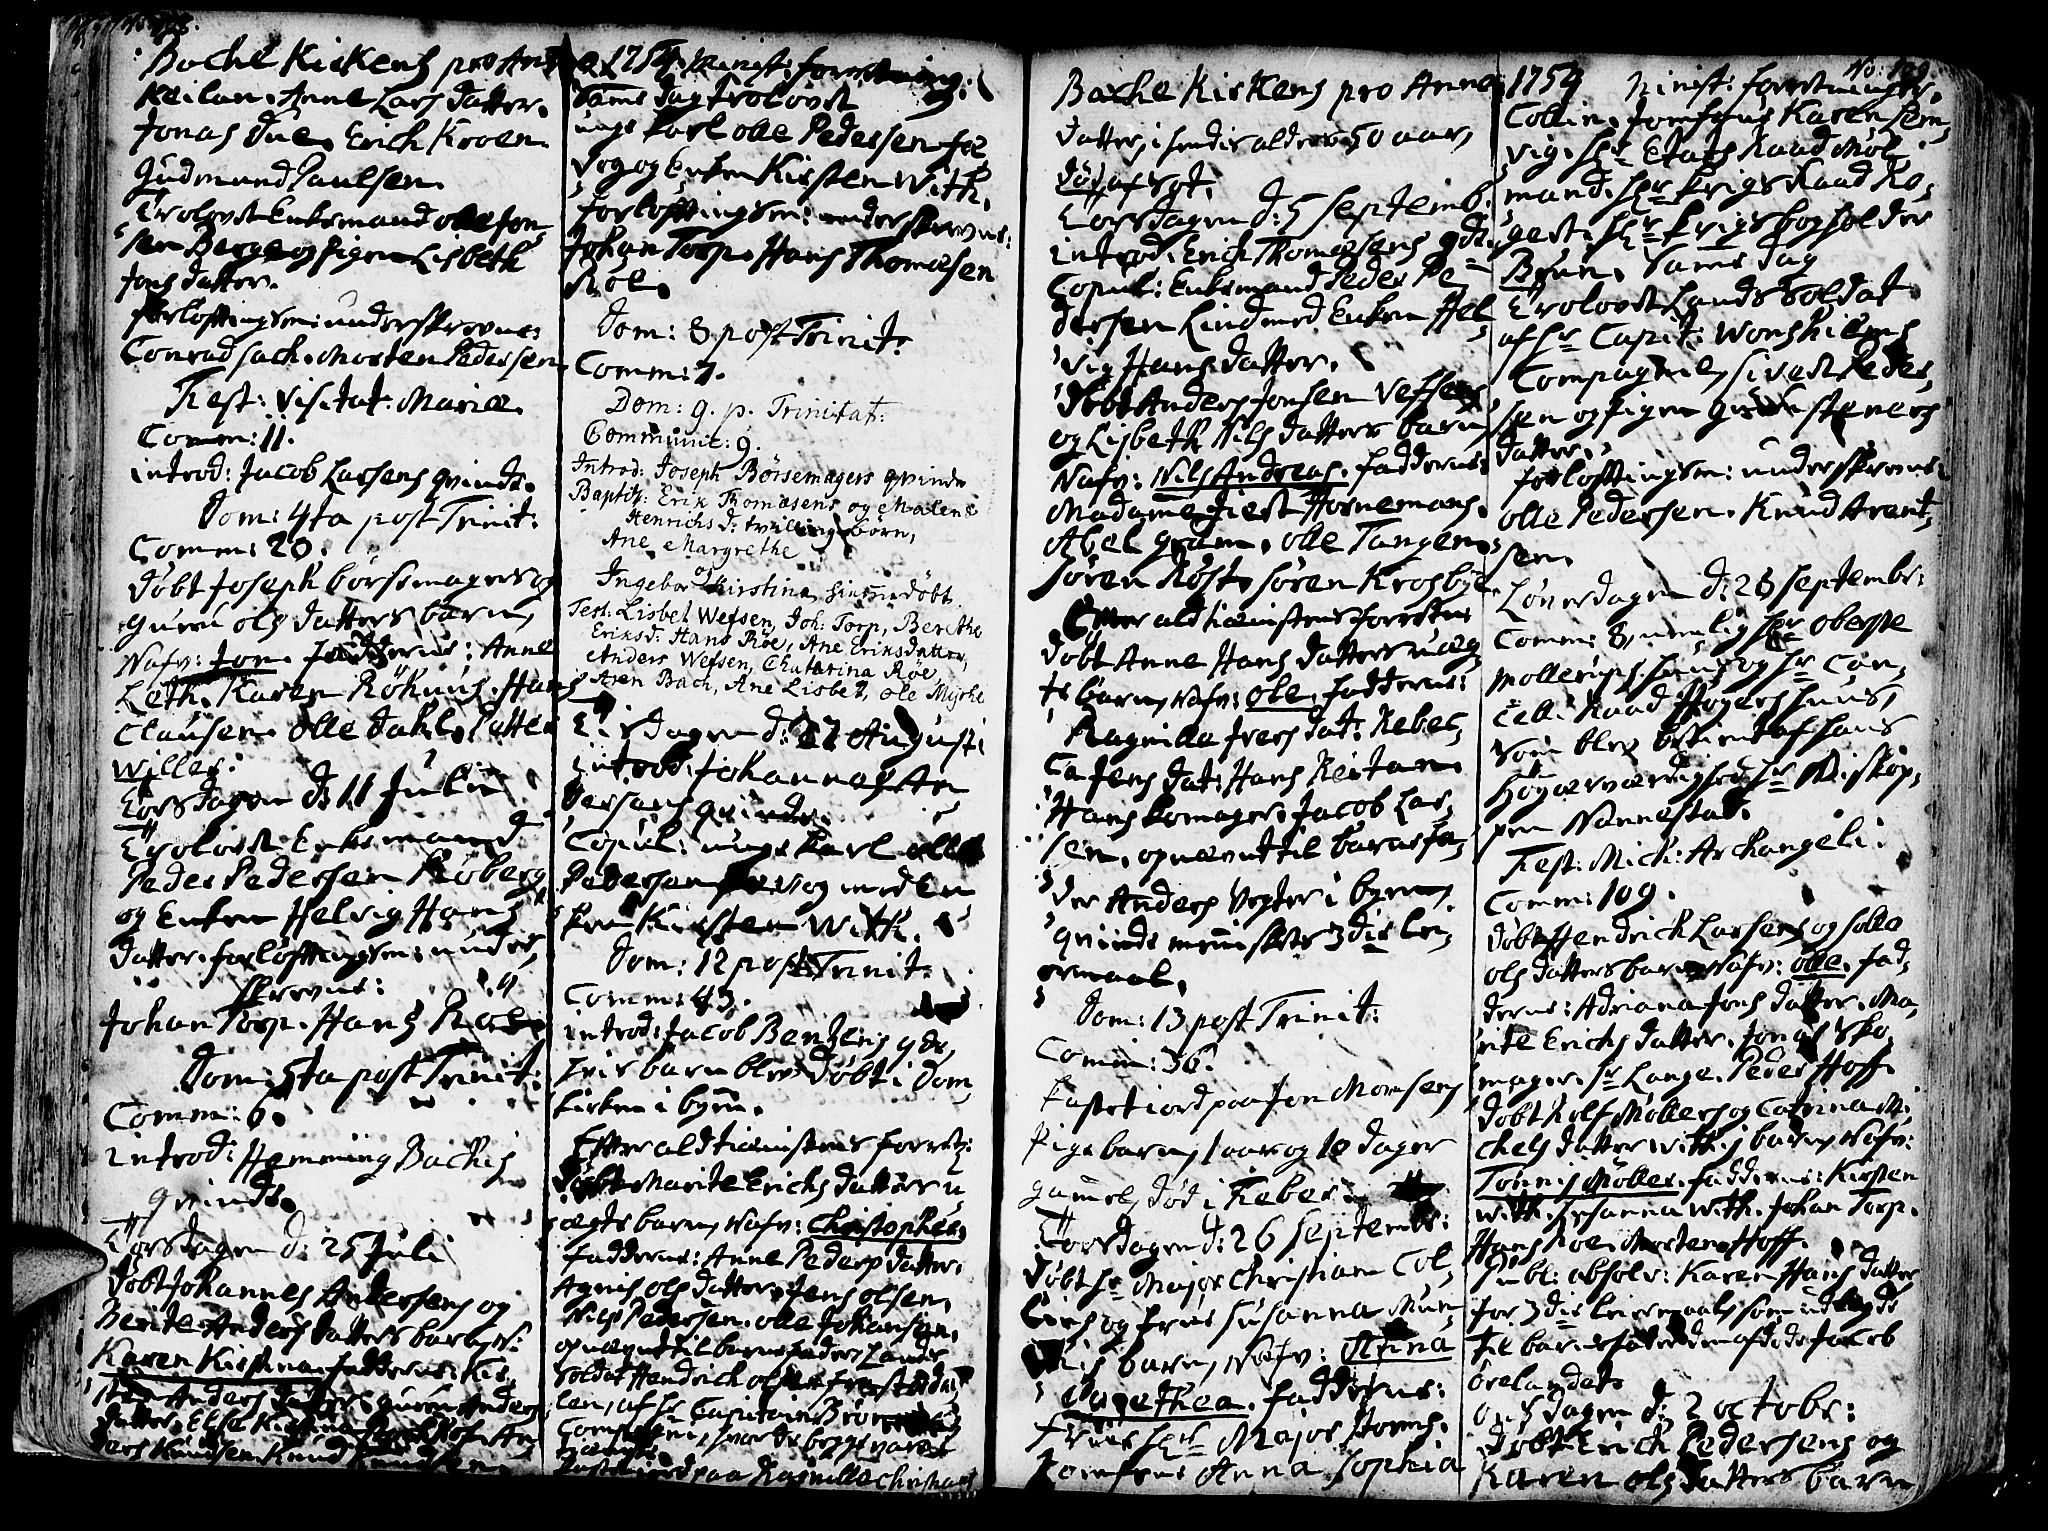 Bache Kirkens pro Ann
Reitan. Anne Lars datter.
Jonas Due. Erich Kroen
Gudmund Paulsen.
Trolovet Enkemand Olle Jon-
sen Berge og Pigen Lisbeth
Jons datter.
forlofningsm: underskrevne:
Conrad Sach. Morten Pedersen.
Fest: Visitat: Mariæ.
Comm: 11.
introd: Jacob Larsens qvinde.
Dom: 4ta post Trinit:
Comm: 20.
døbt Joseph børsemagers og
Guru Ols datters barn,
Nafv: Jon. fadderne: Anne
Leth. Karen Røkuus. Hans
Clausen. Olle Dahl. Petter
Willer.
Torsdagen d: 11 Julii
Trolovet Enkemand
Peder Pedersen Roberg
og Enken Helvig Hans
datter. forlofningsm: under-
skrevne:
Johan Torp. Hans Roe
Dom: 5ta post Trinit:
Comm: 6.
introd: Hemming Bachis
qvinde.
Torsdagen d: 25 Juli
døbt Johannes Andersens og
Berite Anders datters barn, N:
Karen Kirstina. fadderne: Kir-
sten Anders datter. Guru Anders
datter. Else Kirstina
ders Knudsen. Knud
o 1754. Minist: forretning.
Samme dag trolovet
unge karl Olle Pedersen
Vog og Enken Kirsten With.
forlofningsm: underskrevne:
Johan Torp. Hans Thomesen
Roe.
Dom: 8 post Trinit:
Comm: 7.
Dom: 9. p. Trinitat:
Communic: 9.
Introd: Joseph Börsemagers qvinde
Baptiz: Erik Thomæsens og Malene
Henrichs d: tvilling børn,
Ane Margrethe
og
Ingebor Kirstina, hjemme døbt
Test: Lisbet Wefsen, Joh: Torp, Berethe
Eriksd: Hans Röe, Ane Eriksdatter,
Anders Wefsen, Chatarina Röe,
Aren Bach, Ane Lisbet, Ole Myrhe
Tirsdagen d: 27 Augusti
introd: Johannes An
dersens qvinde.
Copul: unge karl Olle
Pedersen Vog med En
ken Kirsten With.
Dom: 12 post Trinit:
Comm: 43.
introd: Jacob Bentzens qde,
hvis barn blev døbt i Dom
kirken i byen.
Efter altienistens forretn:
døbt Marite Erichs datters u
ægte barn, Nafv: Christopher,
fadderne: Anne Peders datter.
Agnis Ols datter, Jens Olsen,
Nils Pedersen. Olle Johansen.
opnævnt til barnefader Lands
soldat Hendrich Olsen
len, af Hr Capitain
Compagnie, hvor de begge varet
tienst.
kastet iord paa Ragnilla Christians
Bache Kirkens pro Anno
datter, i hendis alder 50 aar,
død af sot.
Torsdagen d: 5 Septemb.
introd: Erich Thomesens qde.
Copul: Enkemand Peder Pe-
dersen Lind med Enken Hel
vig Hans datter.
døbt Anders Jonsen Vefsens
og Lisbeth Nils datters barn,
Nafv: Nils Andreas. fadderne:
Madame Giert Hornemans.
Abel Gram. Olle Tangen
Søren Røst. Søren Krogbye
Efter altienistens forretn
døbt Anne Hans datters uæg
te barn, Nafv: Ole. fadderne:
Ragnilla Ivers dat: Rebec-
ca Jens dat: Hans Reitan.
Hans komager. Jacob Lar-
sen. opnævnt til barnefa-
der Anders Vegter i byen,
qvinde menniskets 3die lei-
ermaal.
Dom: 13 post Trinit:
Comm: 36.
kastet iord paa Jon Monsens
Pigebarn, 1 aar og 10 dager
gamel, død i Feber:
Torsdagen d: 26 Septembr:
døbt Hr Major Christian Col-
lins og frue Susanna Mun-
this barn, Nafv: Stina
Dorethea. fadderne:
Frue Hr Major Storms.
Jomfrue Anna Sophia
1754 Minist: forretninger.
No: 109.
Collin. Jomfrue Karen Hen-
vig. Hr Etats Raad Møl
mand. Hr Krigs Raad Ro-
gert. Hr Krigsbogholder
Brun. Samme dag
Trolovet Lands soldat
af Hr Capit: Wonskiems
Compagnie, Sivert Peder-
sen og Pigen Steners
datter.
forlofningsm: underskrevne:
Olle Pedersen. Knud Arent-
sen.
Løverdagen d: 28 Septembr:
Comm: 8, nemlig Hr Oberste
Møllerups huus og Hr Can-
celli Raad Høyers huus,
som blev betient af hans
Høyærværdighed Hr Biskop-
pen Nannestad.
Fest: Mich: Archangeli.
Comm: 109.
døbt Hendrich Larsens og Sølle
Ols datters barn, Nafv: Olle. fad-
derne: Adriana Jons datter. Ma-
rite Erichs datter. Jonas Sko
mager. Hr Lange. Peder Hoff.
døbt Rolf Møllers og Catrina Mi-
chels datter Withs barn, Nafv:
Tønnis Møller. fadderne: Kirsten
With. Susanna With. Johan Torp.
Hans Roe. Morten Hoff.
Publ: absolv: Karen Hans datter
for 3die leiermaal, som udlagde
til barnefader den afdøde Jacob
Ørelandet.
Onsdagen d: 2 Octobr:
døbt Erich Pedersens og
Karen Ols datters barn